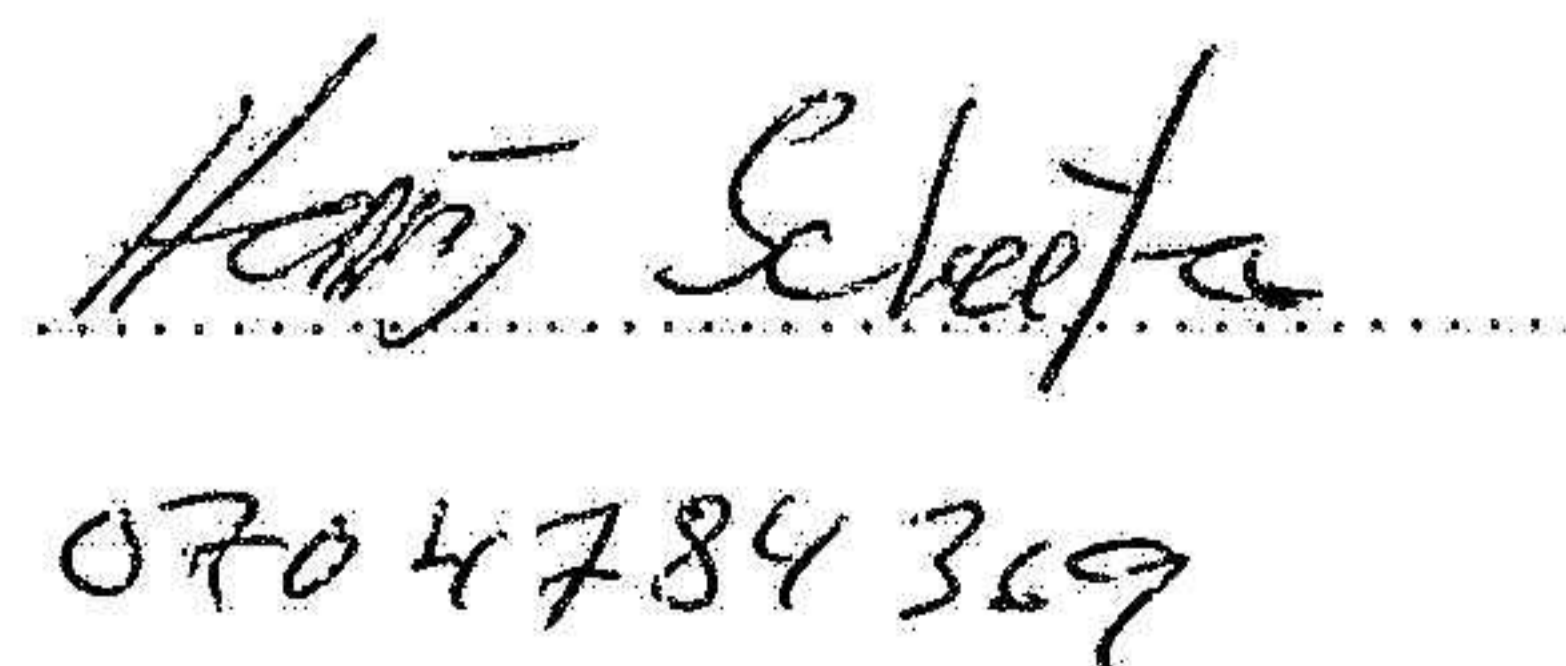 Harry Scheefa
070 4784 369